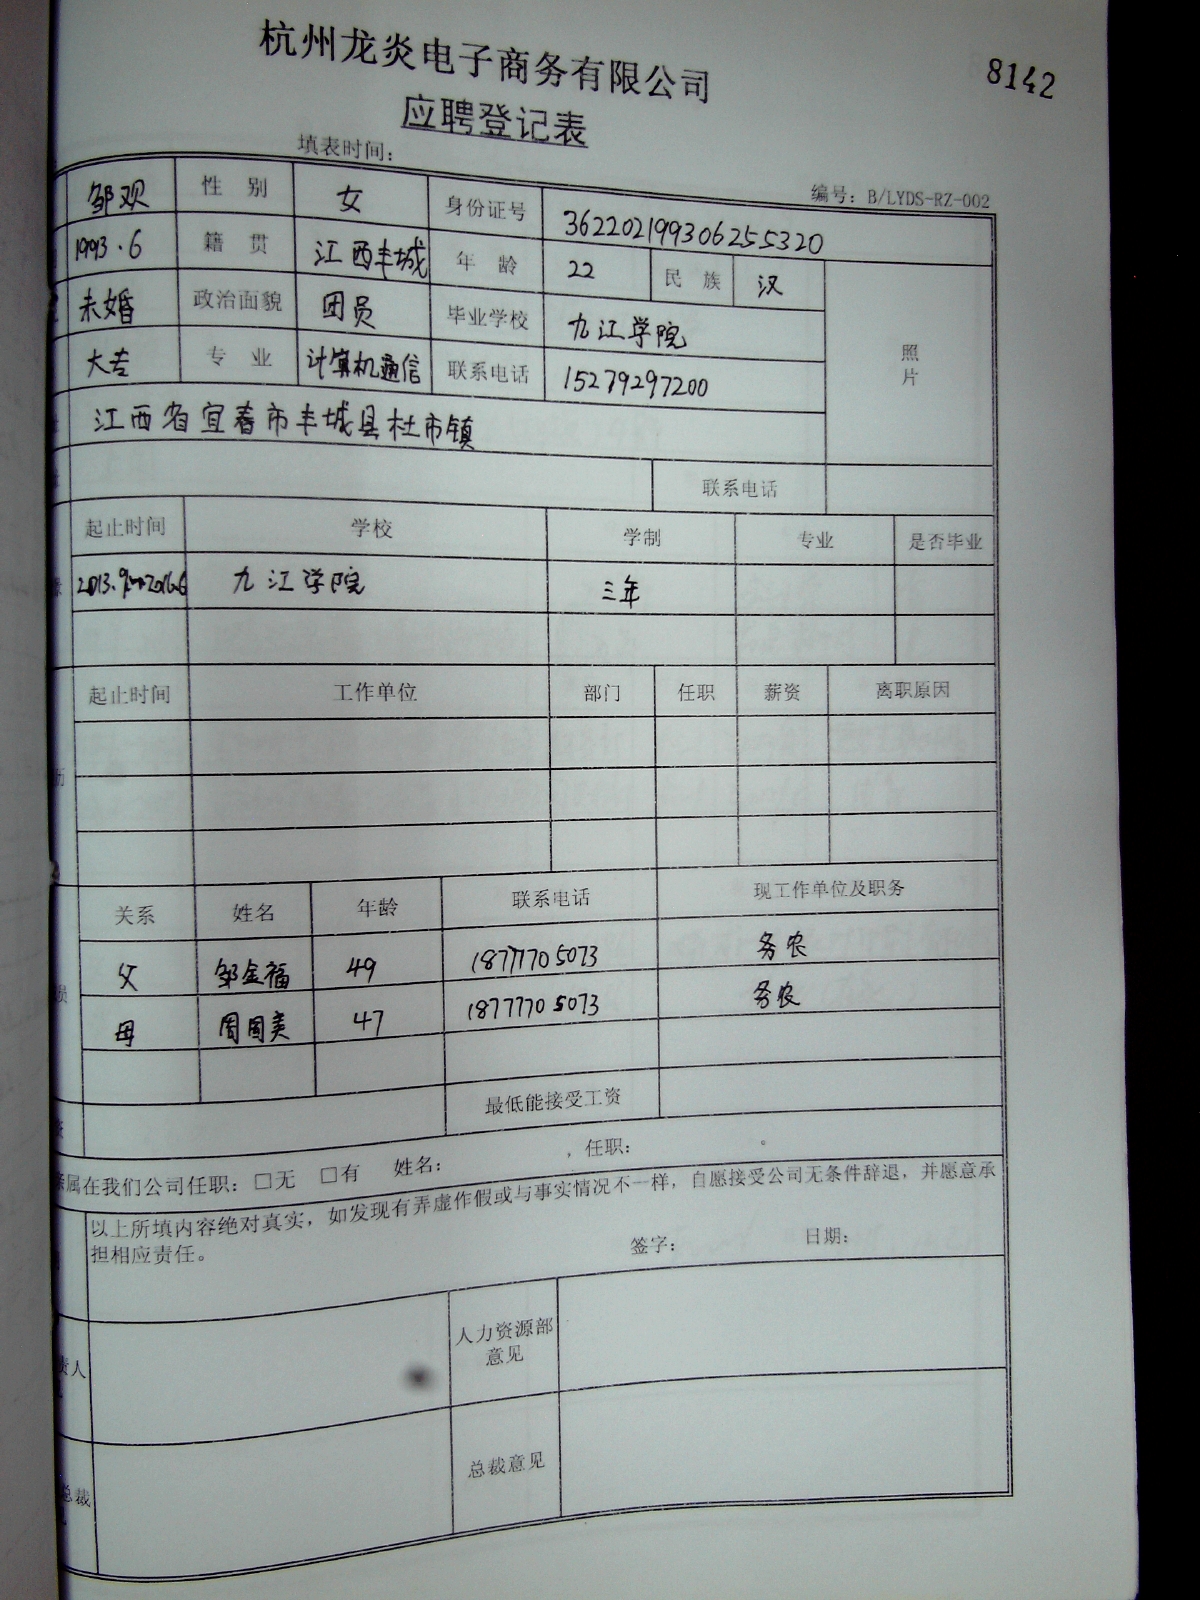 杭州龙炎电子商务有限公司
8142
应聘登记表
填表时间：
编号：B/LYDS-RZ-002
邹观 性 别 女 身份证号 362202199306255320
1993.6 籍 贯 江西丰城 年 龄 22 民 族 汉
未婚 政治面貌 团员 毕业学校 九江学院
照片
大专 专 业 计算机通信 联系电话 15279297200
江西省宜春市丰城县杜市镇
联系电话
起止时间 学校 学制 专业 是否毕业
2013.9 2016.6 九江学院 三年
起止时间 工作单位 部门 任职 薪资 离职原因
历
关系 姓名 年龄 联系电话 现工作单位及职务
父 邹金福 49 18777705073 务农
母 周国美 47 18777705073 务农
最低能接受工资
亲属在我们公司任职：□无 □有 姓名： ，任职： 。
以上所填内容绝对真实，如发现有弄虚作假或与事实情况不一样，自愿接受公司无条件辞退，并愿意承
担相应责任。 签字： 日期：
责人 人力资源部
意见
总裁 总裁意见